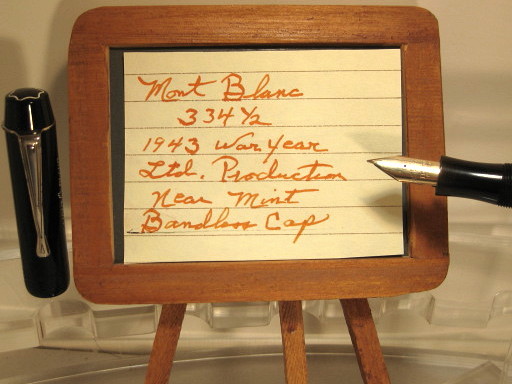 Mont Blanc
334 ½
1943 War year
Ltd. Production
Near Mint
Bandless Cap